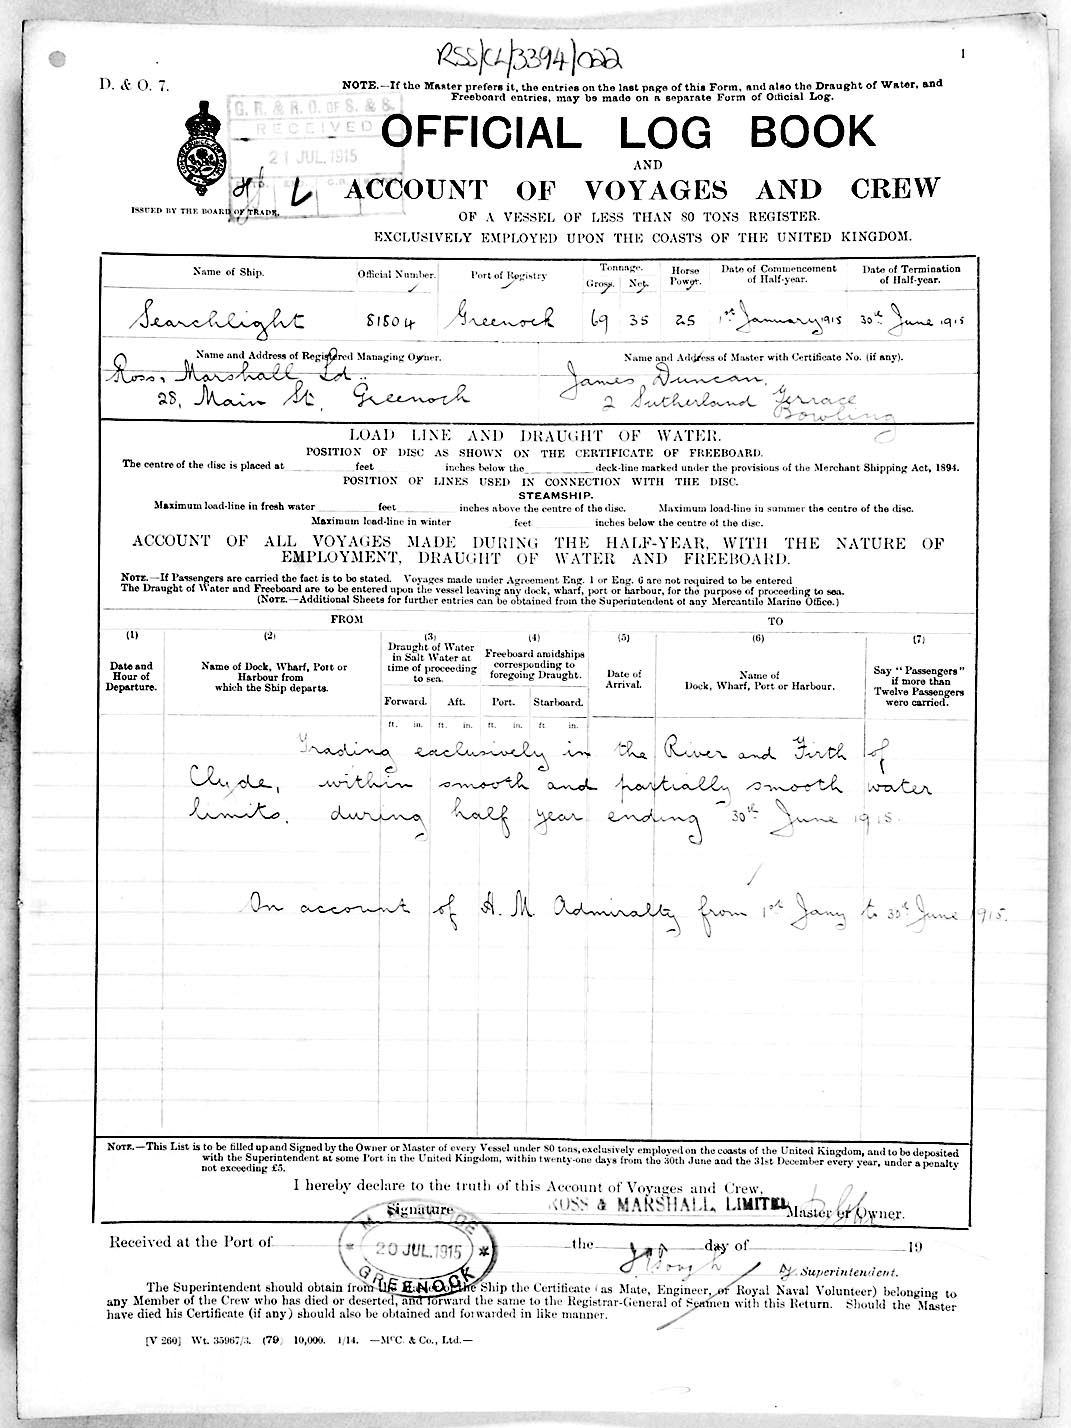 RSS/CL/3394/022
1
D. & O. 7.
NOTE.—If the Master prefers it, the entries on the last page of this Form, and also the Draught of Water, and
Freeboard entries, may be made on a separate Form of Official Log.
G. R. & R. O. OF S. & S.
RECEIVED
21 JUL. 1915
OFFICIAL LOG BOOK
AND
ACCOUNT OF VOYAGES AND CREW
ISSUED BY THE BOARD OF TRADE.
OF A VESSEL OF LESS THAN 80 TONS REGISTER.
EXCLUSIVELY EMPLOYED UPON THE COASTS OF THE UNITED KINGDOM.
Name of Ship. Official Number. Port of Registry Tonnage. Gross. Net. Horse Power. Date of Commencement of Half-year. Date of Termination of Half-year.
Searchlight 81804 Greenock 69 35 25 1st January 1915 30th June 1915
Name and Address of Registered Managing Owner. Name and Address of Master with Certificate No. (if any).
Ross & Marshall Ld. James Duncan,
28, Main St., Greenock 2 Sutherland Terrace
Bowling
LOAD LINE AND DRAUGHT OF WATER.
POSITION OF DISC AS SHOWN ON THE CERTIFICATE OF FREEBOARD.
The centre of the disc is placed at feet inches below the deck-line marked under the provisions of the Merchant Shipping Act, 1894.
POSITION OF LINES USED IN CONNECTION WITH THE DISC.
STEAMSHIP.
Maximum load-line in fresh water feet inches above the centre of the disc. Maximum load-line in summer the centre of the disc.
Maximum load-line in winter feet inches below the centre of the disc.
ACCOUNT OF ALL VOYAGES MADE DURING THE HALF-YEAR, WITH THE NATURE OF
EMPLOYMENT, DRAUGHT OF WATER AND FREEBOARD.
NOTE.—If Passengers are carried the fact is to be stated. Voyages made under Agreement Eng. 1 or Eng. 6 are not required to be entered
The Draught of Water and Freeboard are to be entered upon the vessel leaving any dock, wharf, port or harbour, for the purpose of proceeding to sea.
(NOTE.—Additional Sheets for further entries can be obtained from the Superintendent of any Mercantile Marine Office.)
FROM TO
(1) (2) (3) (4) (5) (6) (7)
Date and Hour of Departure. Name of Dock, Wharf, Port or Harbour from which the Ship departs. Draught of Water in Salt Water at time of proceeding to sea. Freeboard amidships corresponding to foregoing Draught. Date of Arrival. Name of Dock, Wharf, Port or Harbour. Say "Passengers" if more than Twelve Passengers were carried.
Forward. Aft. Port. Starboard.
ft. in. ft. in. ft. in. ft. in.
Trading exclusively in the River and Firth of
Clyde, within smooth and partially smooth water
limits, during half year ending 30th June 1915.
On account of H. M. Admiralty from 1st Jany to 30th June 1915.
NOTE.—This List is to be filled up and Signed by the Owner or Master of every Vessel under 80 tons, exclusively employed on the coasts of the United Kingdom, and to be deposited
with the Superintendent at some Port in the United Kingdom, within twenty-one days from the 30th June and the 31st December every year, under a penalty
not exceeding £5.
I hereby declare to the truth of this Account of Voyages and Crew,
Signature ROSS & MARSHALL, LIMITED Master or Owner.
M. M. OFFICE
20 JUL. 1915
GREENOCK
Received at the Port of the day of 19
Superintendent.
The Superintendent should obtain from the Master of the Ship the Certificate (as Mate, Engineer, or Royal Naval Volunteer) belonging to
any Member of the Crew who has died or deserted, and forward the same to the Registrar-General of Seamen with this Return. Should the Master
have died his Certificate (if any) should also be obtained and forwarded in like manner.
[V 260] Wt. 35967/3. (79) 10,000. 1/14. —McC. & Co., Ltd.—